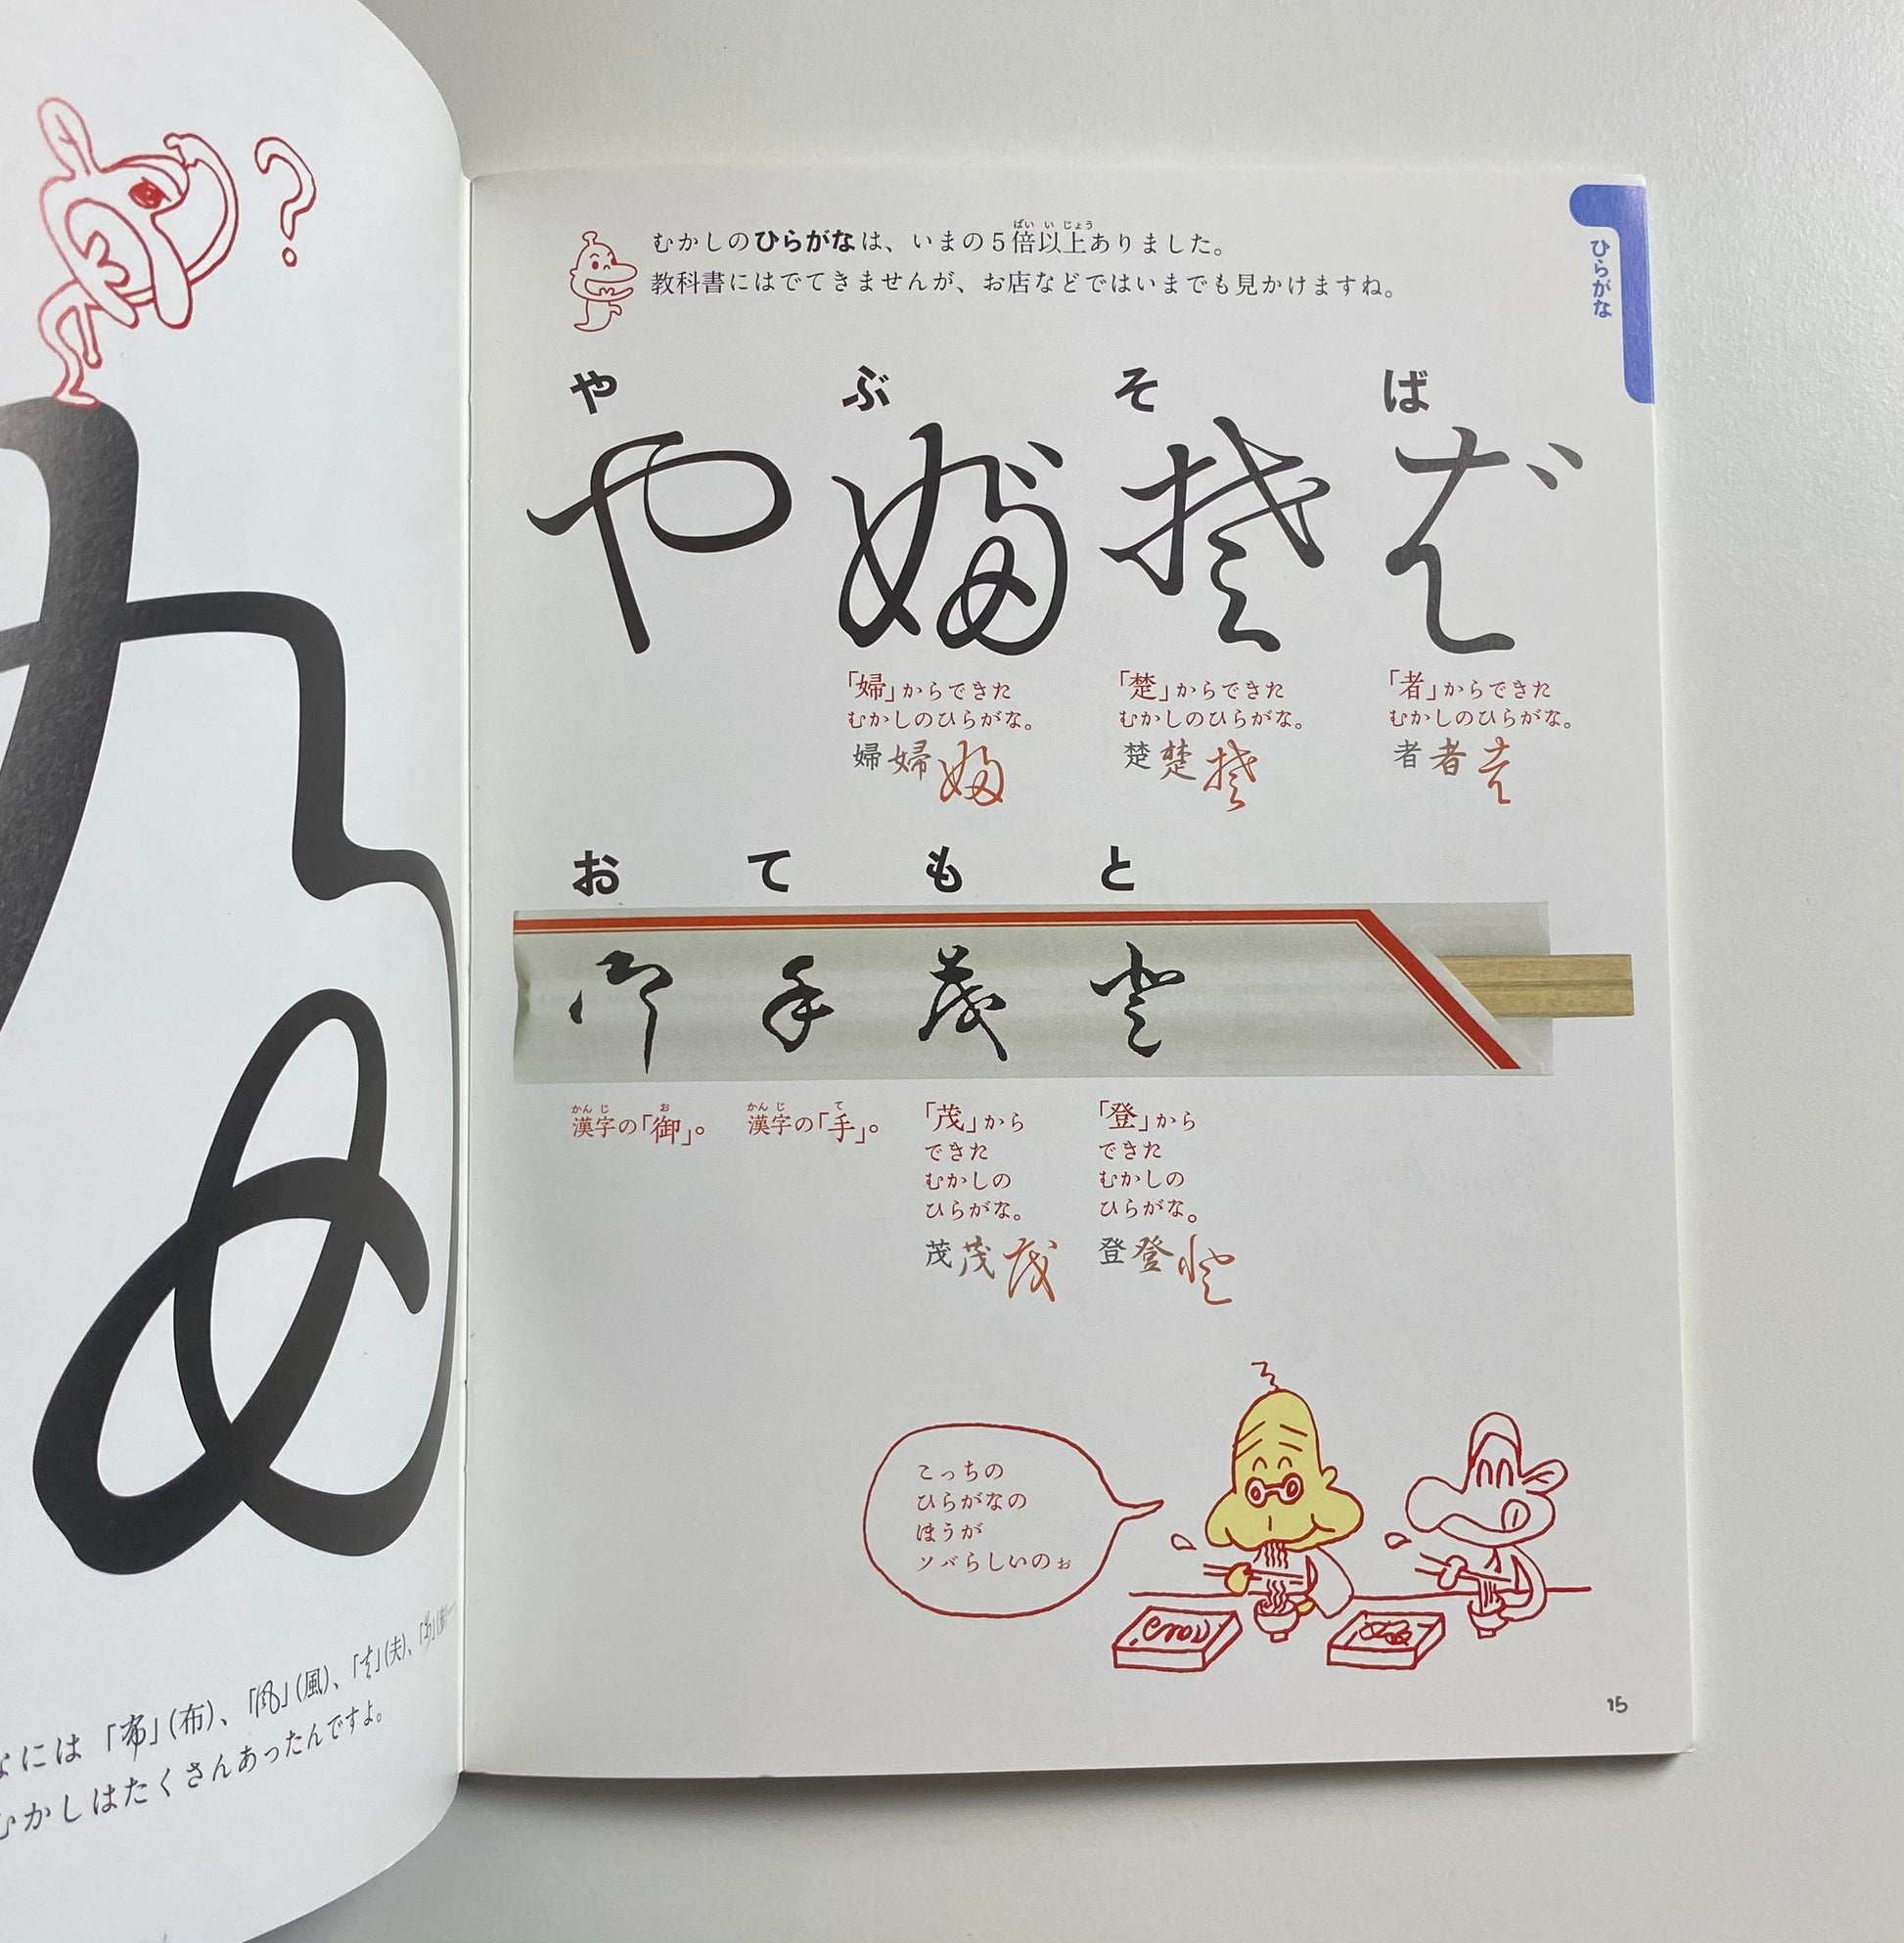 むかしのひらがなは、いまの5倍以上ありました。
教科書にはでてきませんが、お店などではいまでも見かけますね。
ひらがな
や ぶ そ ば
「婦」からできた
むかしのひらがな。
婦婦
「楚」からできた
むかしのひらがな。
楚楚
「者」からできた
むかしのひらがな。
者者
お て も と
御 手 茂 登
漢字の「御」。
漢字の「手」。
「茂」から
できた
むかしの
ひらがな。
茂茂
「登」から
できた
むかしの
ひらがな。
登登
こっちの
ひらがなの
ほうが
ソバらしいのぉ
15
なには「布」(布)、「風」(風)、「夫」(夫)、
むかしはたくさんあったんですよ。